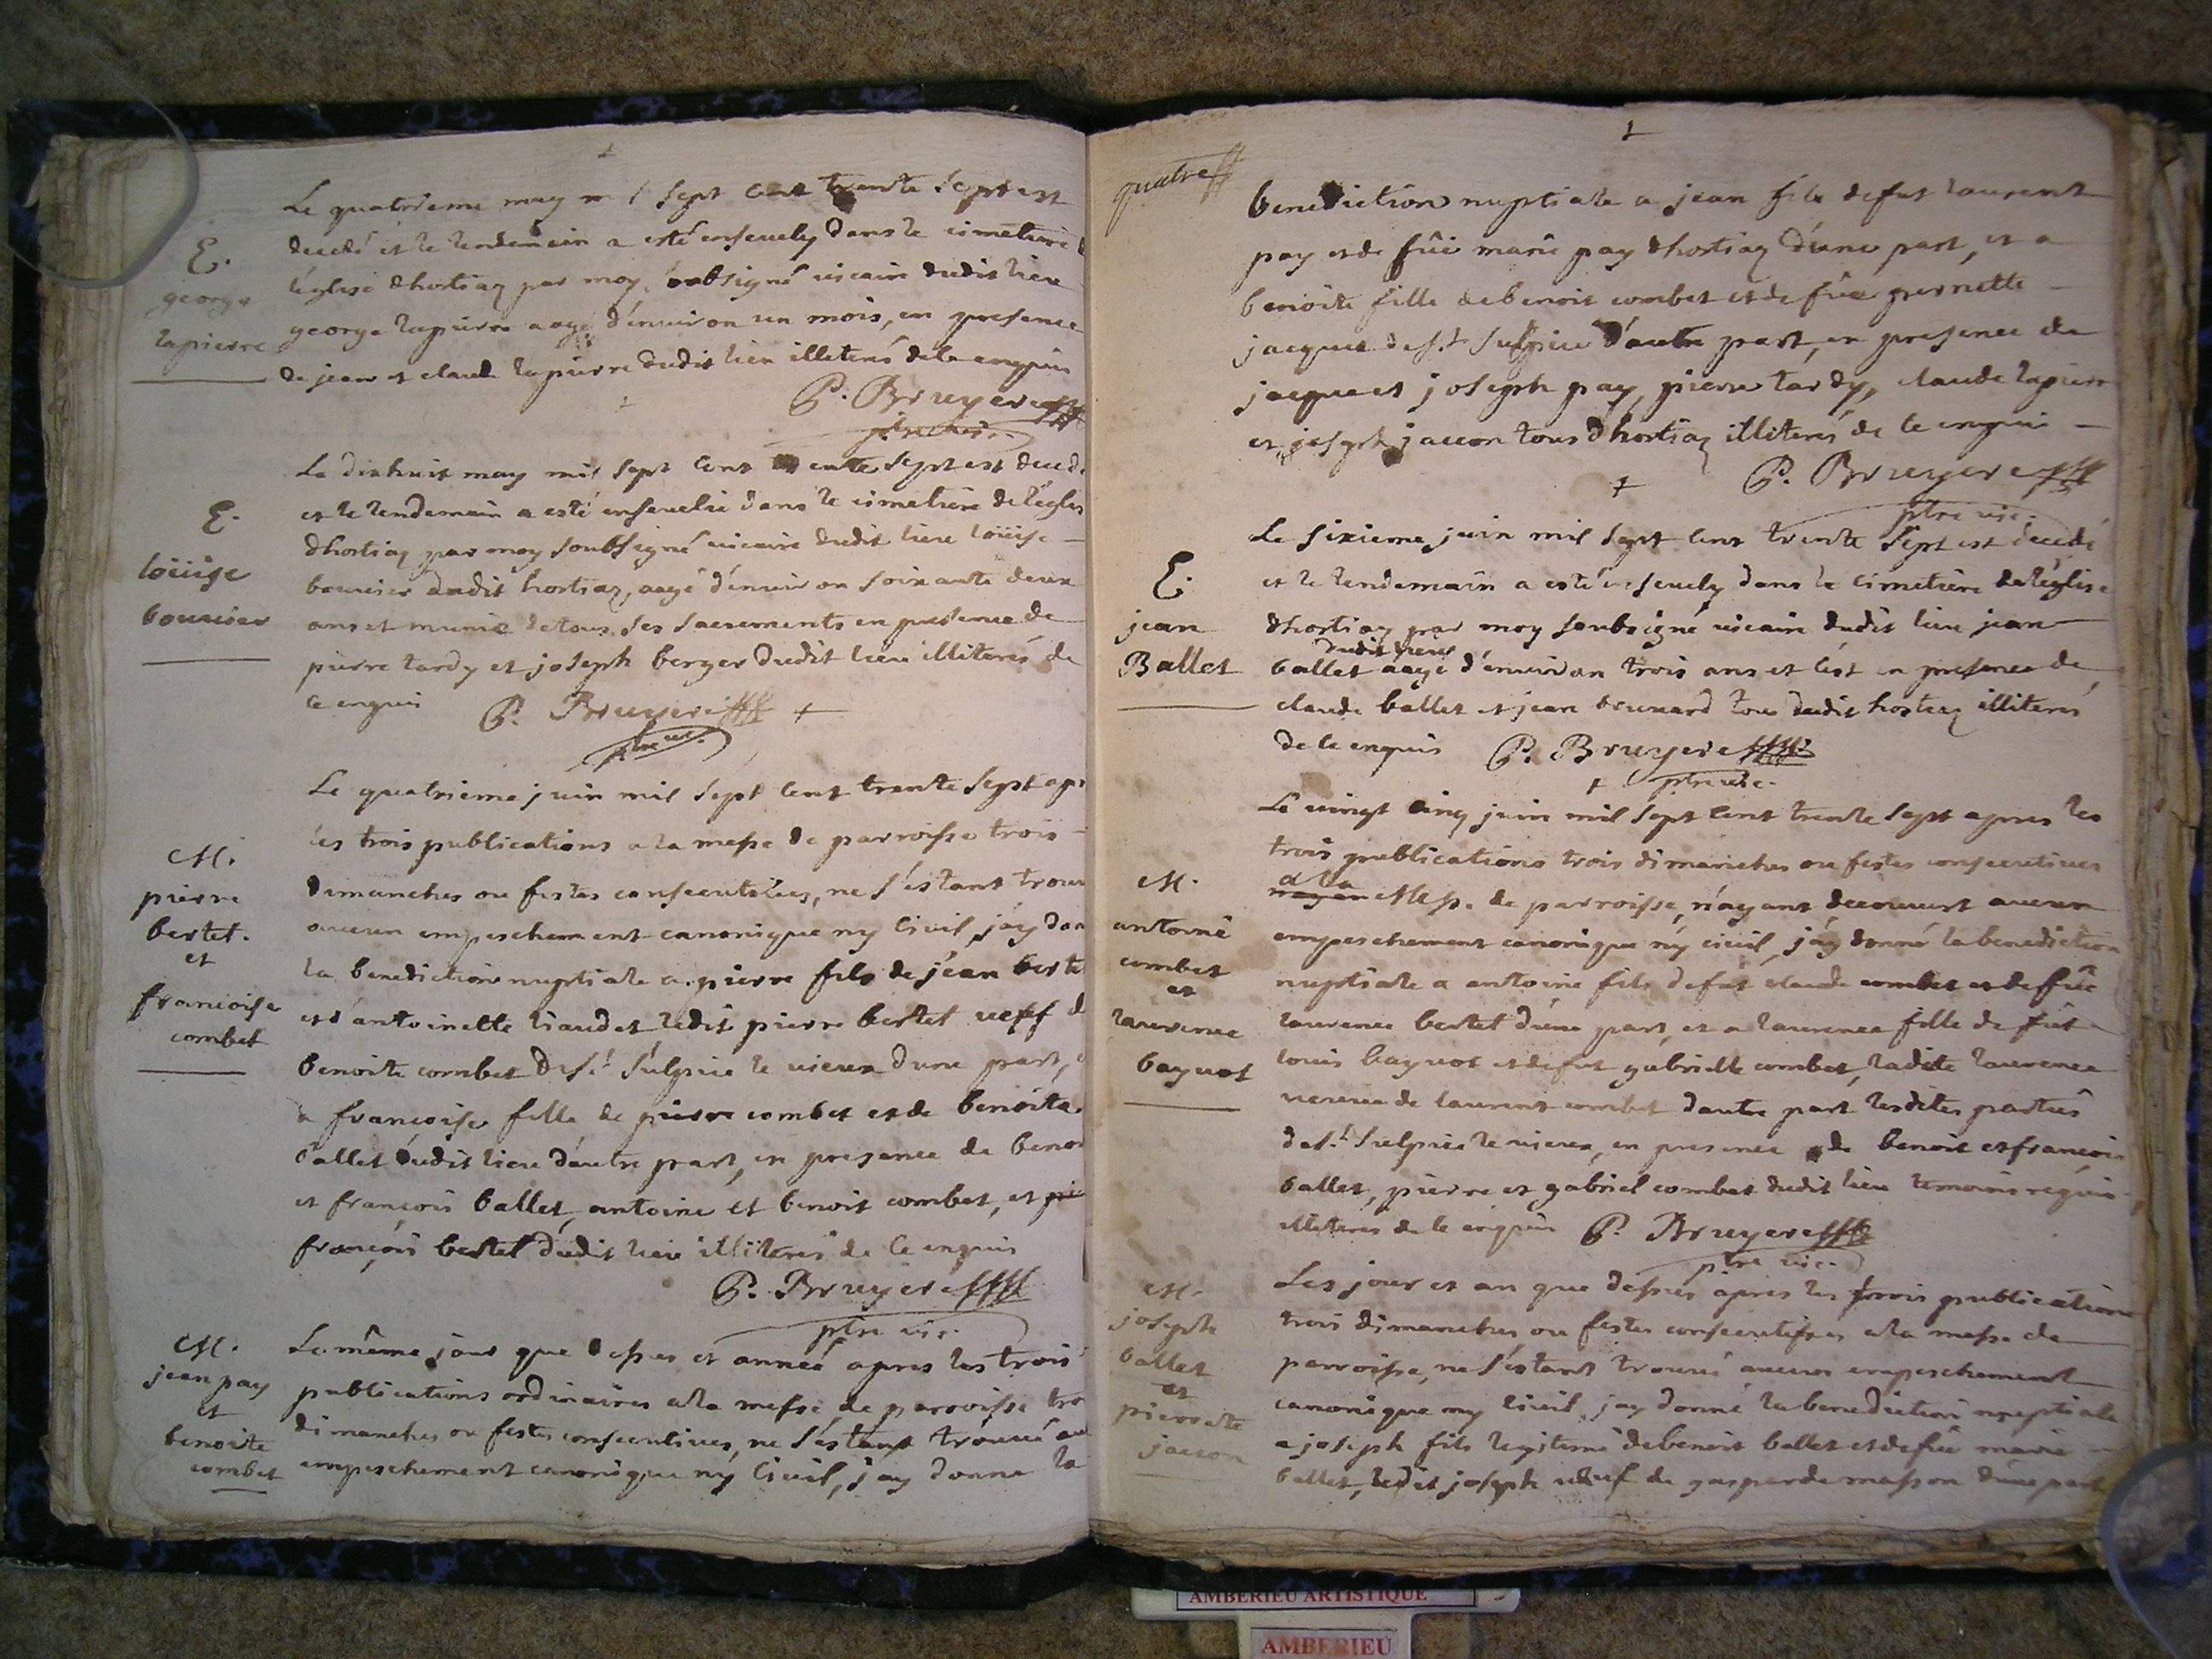 Le quatrieme may m l sept cent trente sept est
decedé et le lendemain a esté ensevely dans le cimetiere
E.
george
lapierre
léglise dhortiaz par moy soubsigné vicaire dudit lieu
george lapierre aagé d'environ un mois, en presence
de jean et claude lapierre dudit lieu illiterés de ce enquis
P. Bruyere
ptre vic.
Le dixhuit may mil sept cent trente sept est deced
E.
loüise
bouvier
et le lendemain a esté ensevelie dans le cimetiere de léglis
dhortiaz par moy soubsigné vicaire dudit lieu loüise
bouvier dudit hortiaz, aagé d'environ soixante deux
ans et munie de tous ses sacrements en presence de
pierre tardy et joseph berger dudit lieu illiterés de
ce enquis P. Bruyere
ptre vic.
Le quatrieme juin mil sept cent trente sept apr
les trois publications a la messe de parroisse trois
M.
pierre
bertet.
et
francoise
combet
dimanches ou festes consecutives, ne s'éstant trouv
aucun empeschement canonique ny civil, j'ay don
la benediction nuptiale a pierre fils de jean berte
et d'antoinette liaudet ledit pierre bertet vef d
benoite combet de st. sulpice le vieux dune part, e
a françoise fille de pierre combet et de benoite
ballet dudit lieu d'autre part, en presence de benoi
et françois ballet, antoine et benoit combet, et pie
françois bertet dudit lieu illiterés de ce enquis
P. Bruyere
ptre vic.
M.
jean pay
et
benoite
combet
Le même jour que dessus et anneé apres les trois
publications ordinaires a la messe de parroisse tro
dimanches ou festes consecutives, ne s'éstant trouvé au
empeschement canonique ny civil, j'ay donné la
quatre
benediction nuptiale a jean fils de fut laurent
pay et de füe marie pay dhortiaz d'une part, et a
benoite fille de benoit combet et de füe pernette
jacques de st. sulpice d'autre part, en presence de
jacque et joseph pay, pierre tardy, claude lapierre
et joseph jaccon tous d'hortiaz illiterés de ce enquis
P. Bruyere
ptre vic.
Le sixieme juin mil sept cent trente sept est decedé
E.
jean
Ballet
et le lendemain a esté ensevely dans le cimetiere de léglise
dhortiaz par moy soubsigné vicaire dudit lieu jean
dudit lieu
ballet aagé d'environ trois ans et c'est en presence de
claude ballet et jean brunard tous dudit hortiaz illiterés
de ce enquis P. Bruyere
ptre vic.
Le vingt cinq juin mil sept cent trente sept apres les
trois publications trois dimanches ou festes consecutives
M.
antoine
combet
et
laurence
bayvot
a la
Messe de parroisse, n'ayant decouvert aucun
empeschement canonique ny civil, j'ay donné la benediction
nuptiale a antoine fils de fut claude combet et de füe
laurence bertet d'une part, et a laurence fille de fut
louis bayvot et de fut gabrielle combet, ladite laurence
veuve de laurent combet dautre part lesdites parties
de st. sulpice le vieux, en presence de benoit et françois
ballet, pierre et gabriel combet dudit lieu temoins requis
illiteres de ce enquis P. Bruyere
ptre vic.
M.
joseph
ballet
et
pierrette
jaccon
Les jour et an que dessus apres les trois publications
trois dimanches ou festes consecutifves a la messe de
parroisse, ne s'éstant trouvé aucun empeschement
canonique ny civil, jay donné la benediction nuptiale
a joseph fils legitime de benoit ballet et de füe marie
ballet, ledit joseph veuf de gasparde masson d'une part
AMBERIEU ARTISTIQUE
AMBERIEU